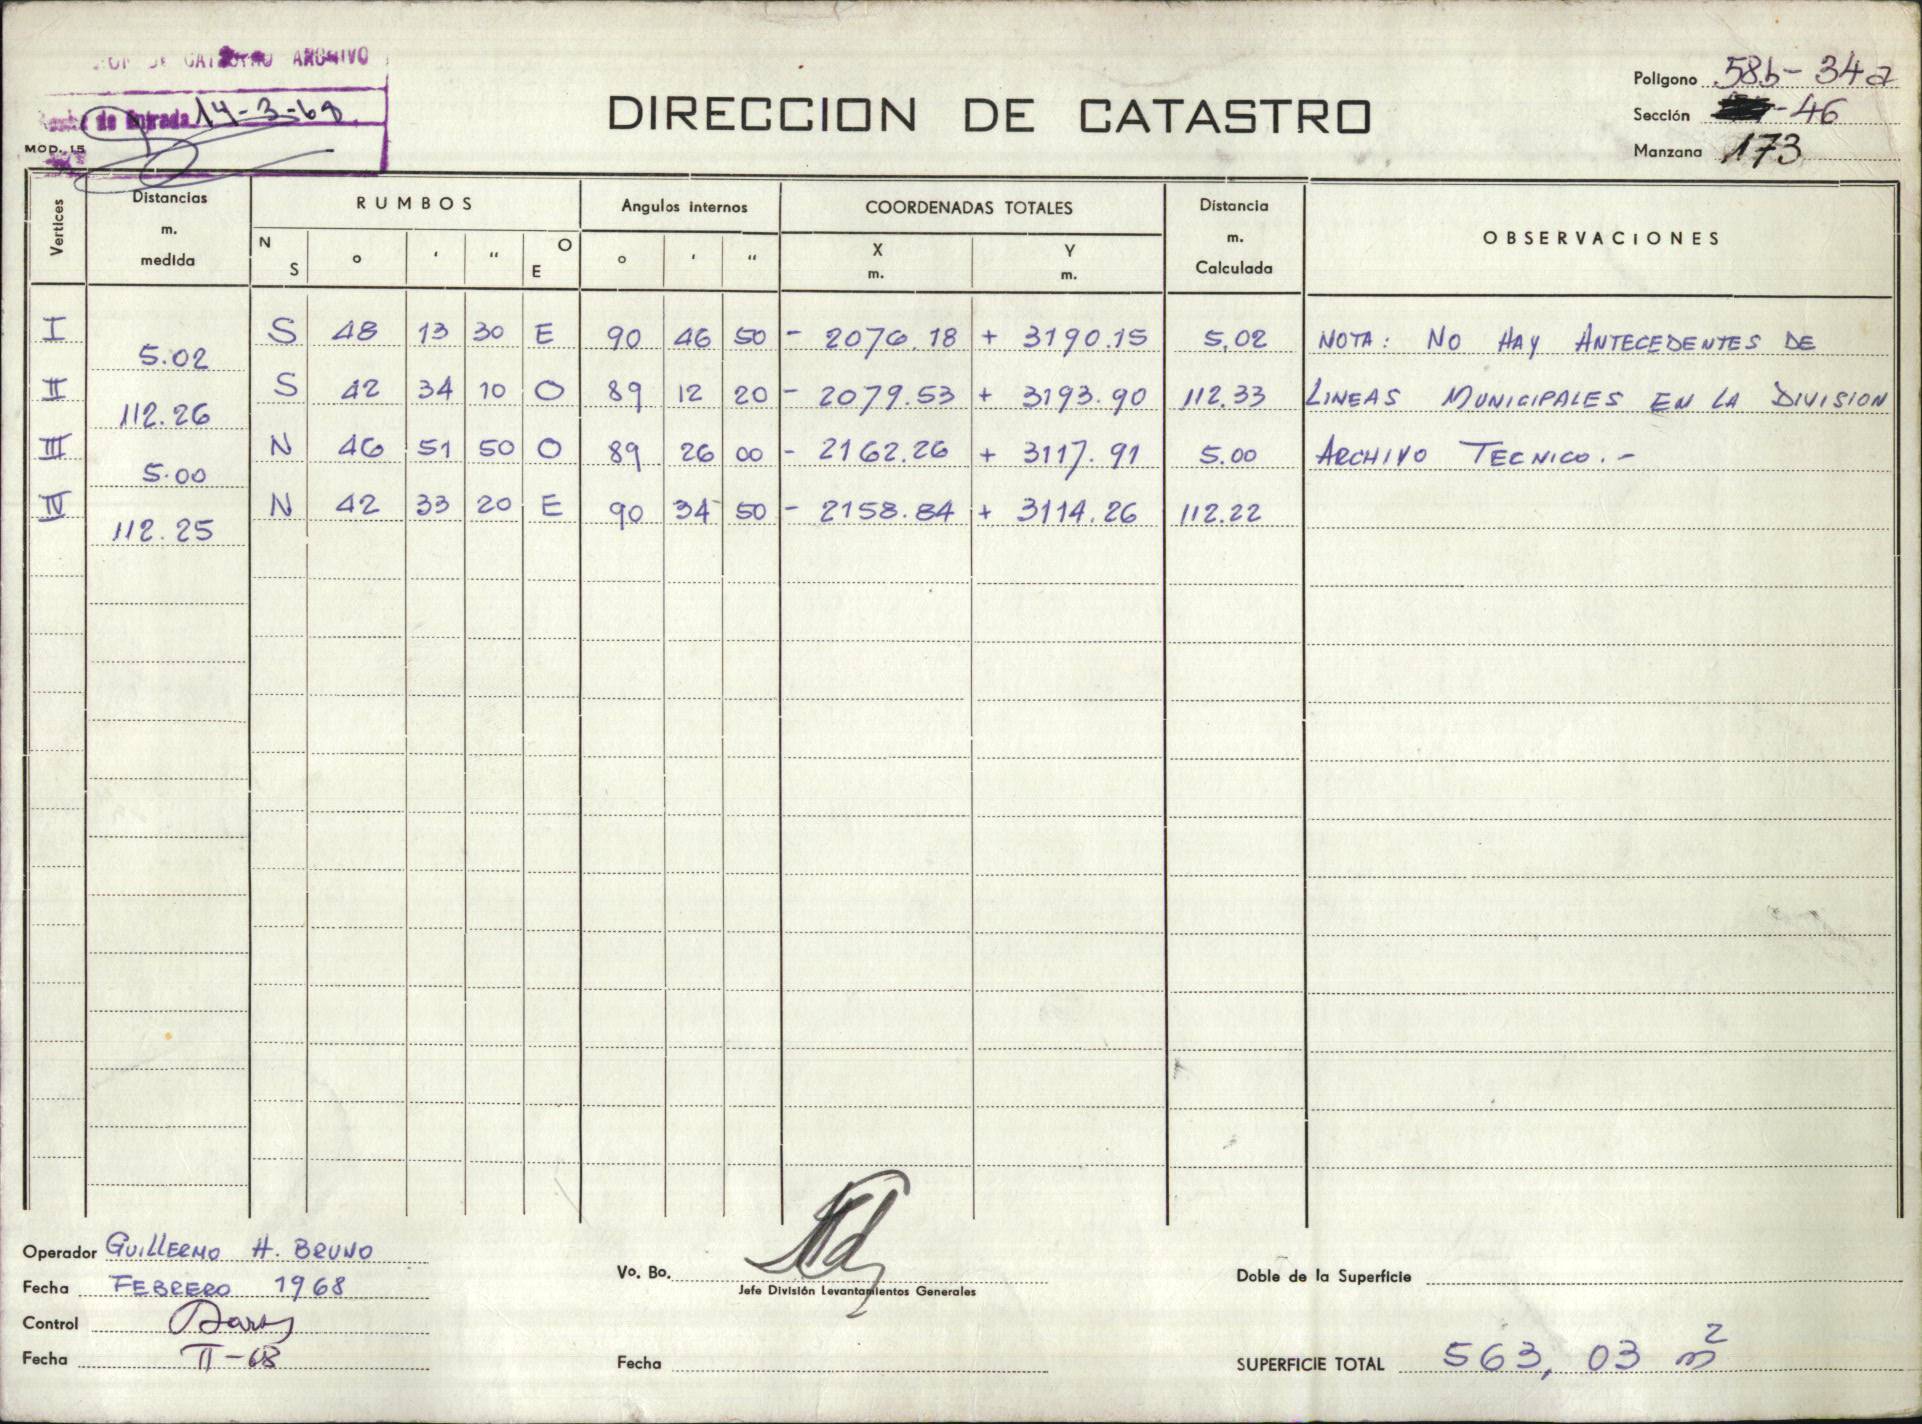 DE CATASTRO ARCHIVO
de Entrada 14-3-68
MOD. 15
DIRECCION DE CATASTRO
Polígono 58b- 34a
Sección -46
Manzana 173
Vertices Distancias m. medida RUMBOS Angulos internos COORDENADAS TOTALES Distancia m. Calculada OBSERVACIONES
N S o ' " O E o ' " X m. Y m.
I 5.02 S 48 13 30 E 90 46 50 - 2076.18 + 3190.15 5.02 NOTA: NO HAY ANTECEDENTES DE
II 112.26 S 42 34 10 O 89 12 20 - 2079.53 + 3193.90 112.33 LINEAS MUNICIPALES EN LA DIVISION
III 5.00 N 46 51 50 O 89 26 00 - 2162.26 + 3117.91 5.00 ARCHIVO TECNICO.-
IV 112.25 N 42 33 20 E 90 34 50 - 2158.84 + 3114.26 112.22
Operador GUILLERMO H. BRUNO
Fecha FEBRERO 1968
Control
Fecha II-68
Vo. Bo.
Jefe División Levantamientos Generales
Fecha
Doble de la Superficie
SUPERFICIE TOTAL 563,03 m²